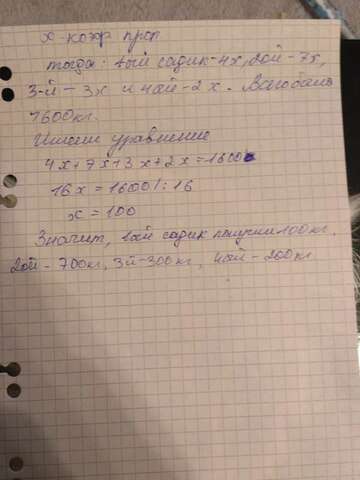 х-коэф проп
тогда: 1ый садик-4х, 2ой-7х,
3-й-3х и 4ый-2х. Всего было
1600кг.
Имеем уравнение
4х+7х+3х+2х=1600
16х=1600/:16
х=100
Значит, 1ый садик получил 100кг,
2ой-700кг, 3й-300кг, 4ый-200кг